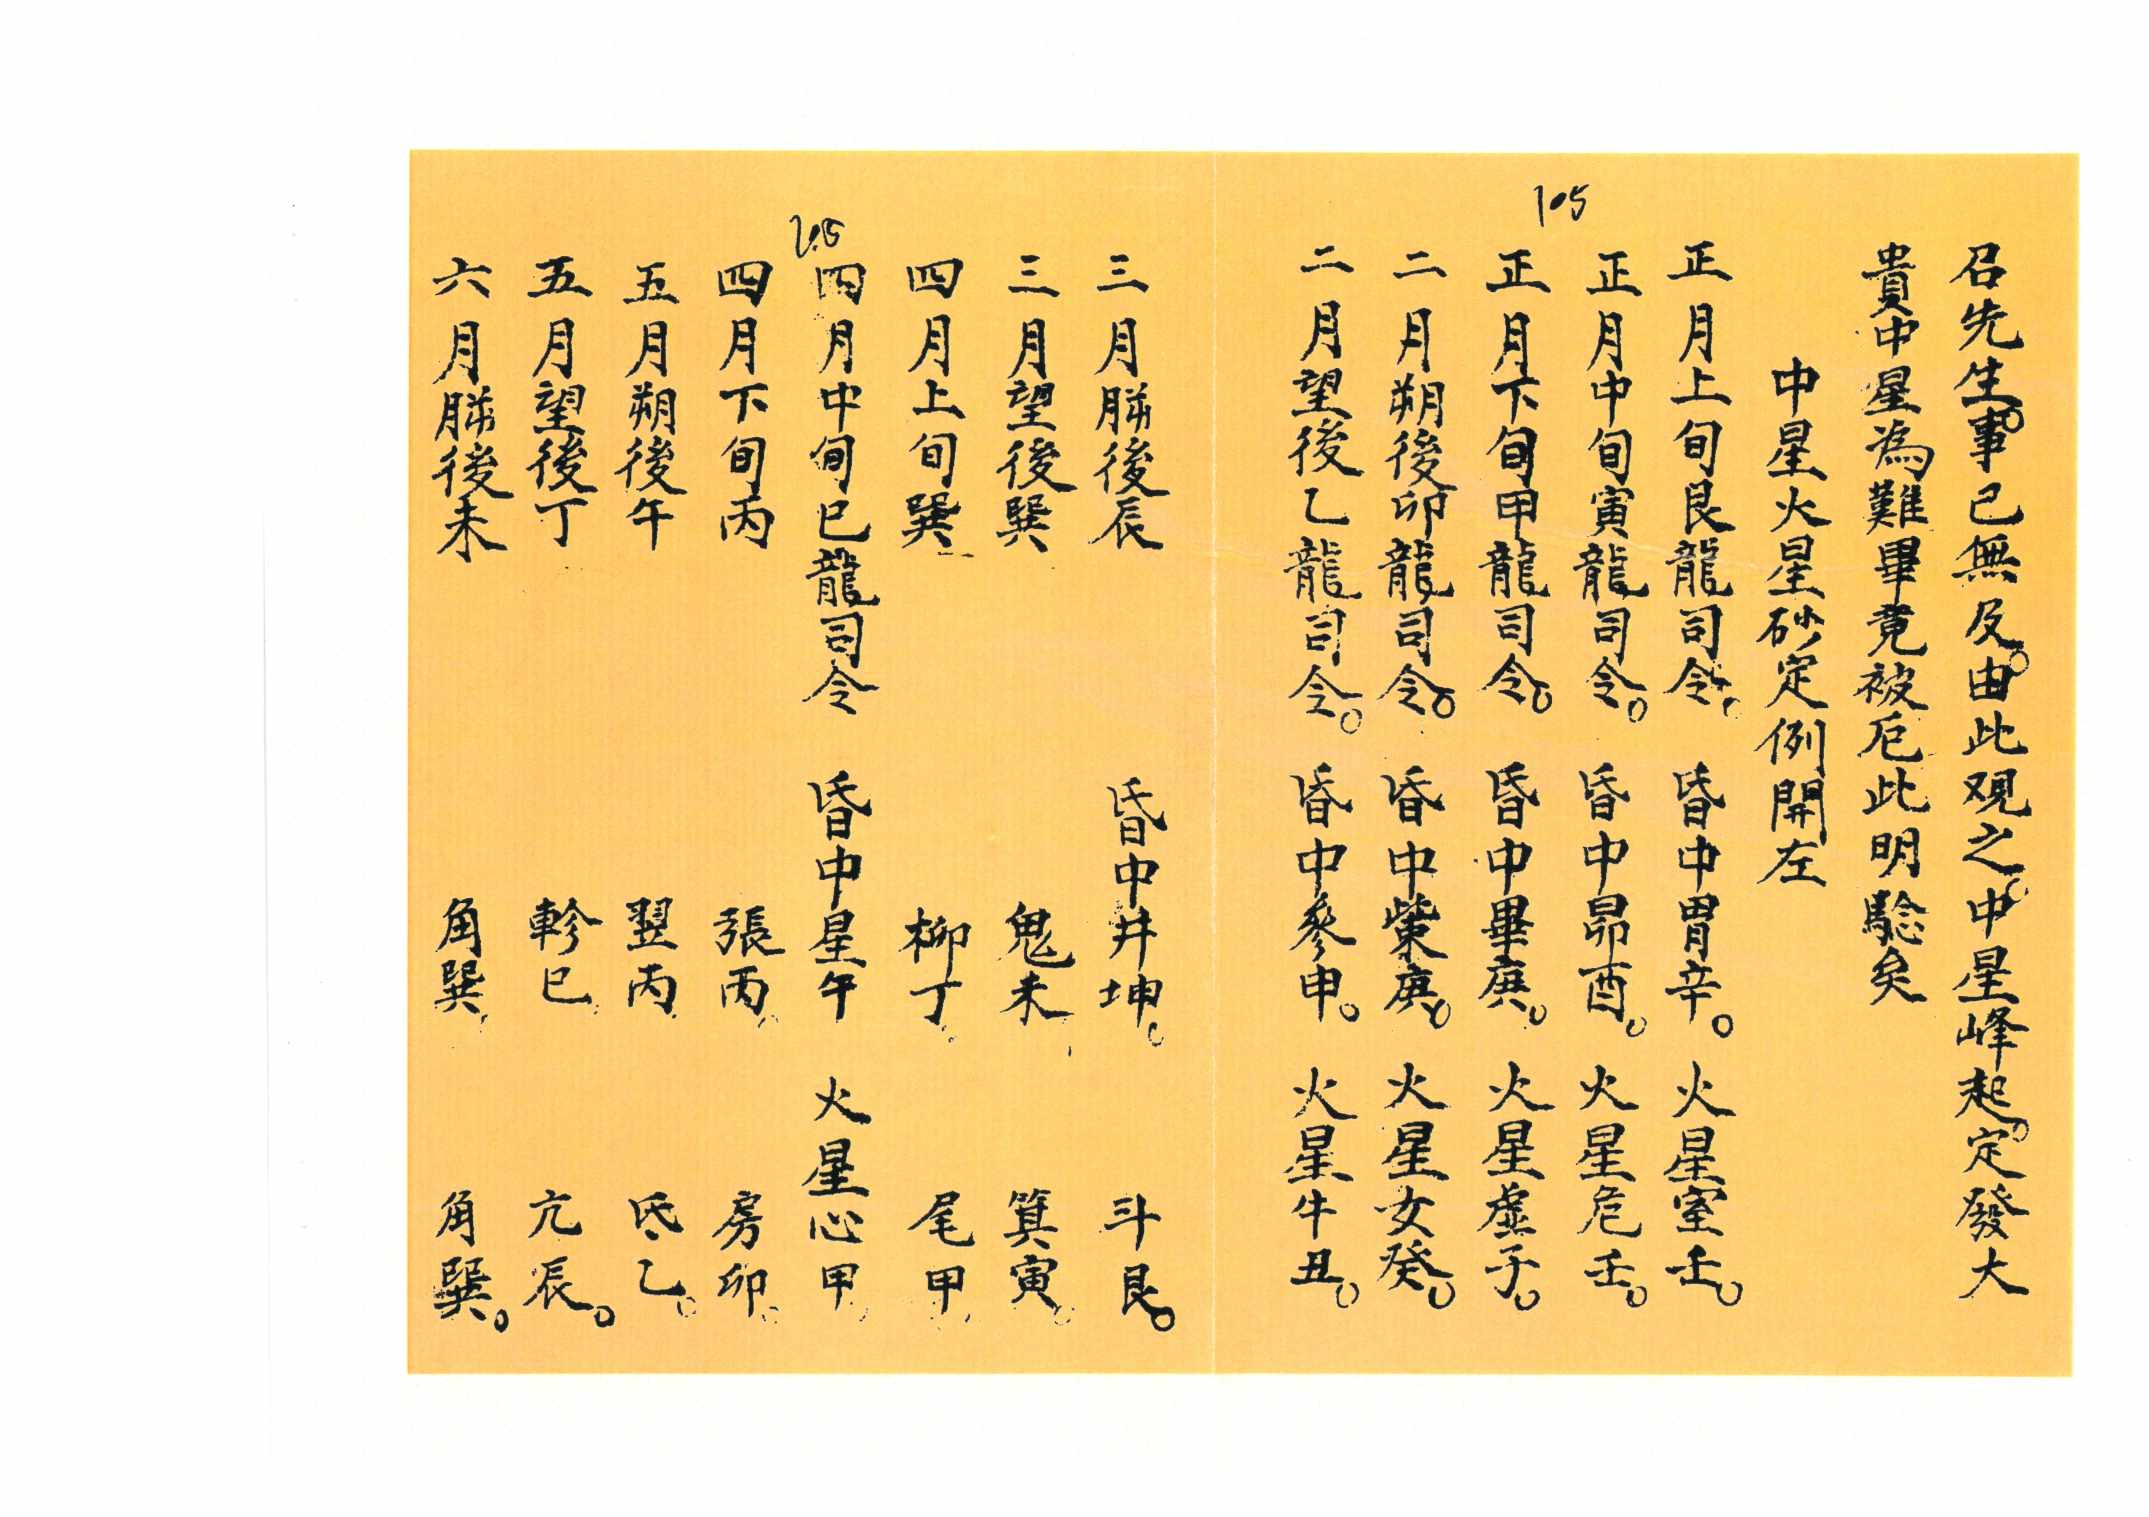 105
召先生。事已無及。由此观之。中星峰起。定發大
貴中星為難畢竟被厄此明騐矣
中星火星砂定例開左
正月上旬艮龍司令。昏中胃辛。火星室壬。
正月中旬寅龍司令。昏中昴酉。火星危壬。
正月下旬甲龍司令。昏中畢庚。火星虛子。
二月朔後卯龍司令。昏中觜庚。火星女癸。
二月望後乙龍司令。昏中參申。火星牛丑。
三月後辰 昏中井坤。斗艮。
三月望後巽 鬼未 箕寅。
四月上旬巽 柳丁 尾甲
四月中旬巳龍司令 昏中星午 火星心甲
四月下旬丙 張丙 房卯
五月朔後午 翌丙 氐乙。
五月望後丁 軫巳 亢辰。
六月後未 角巽 角巽。